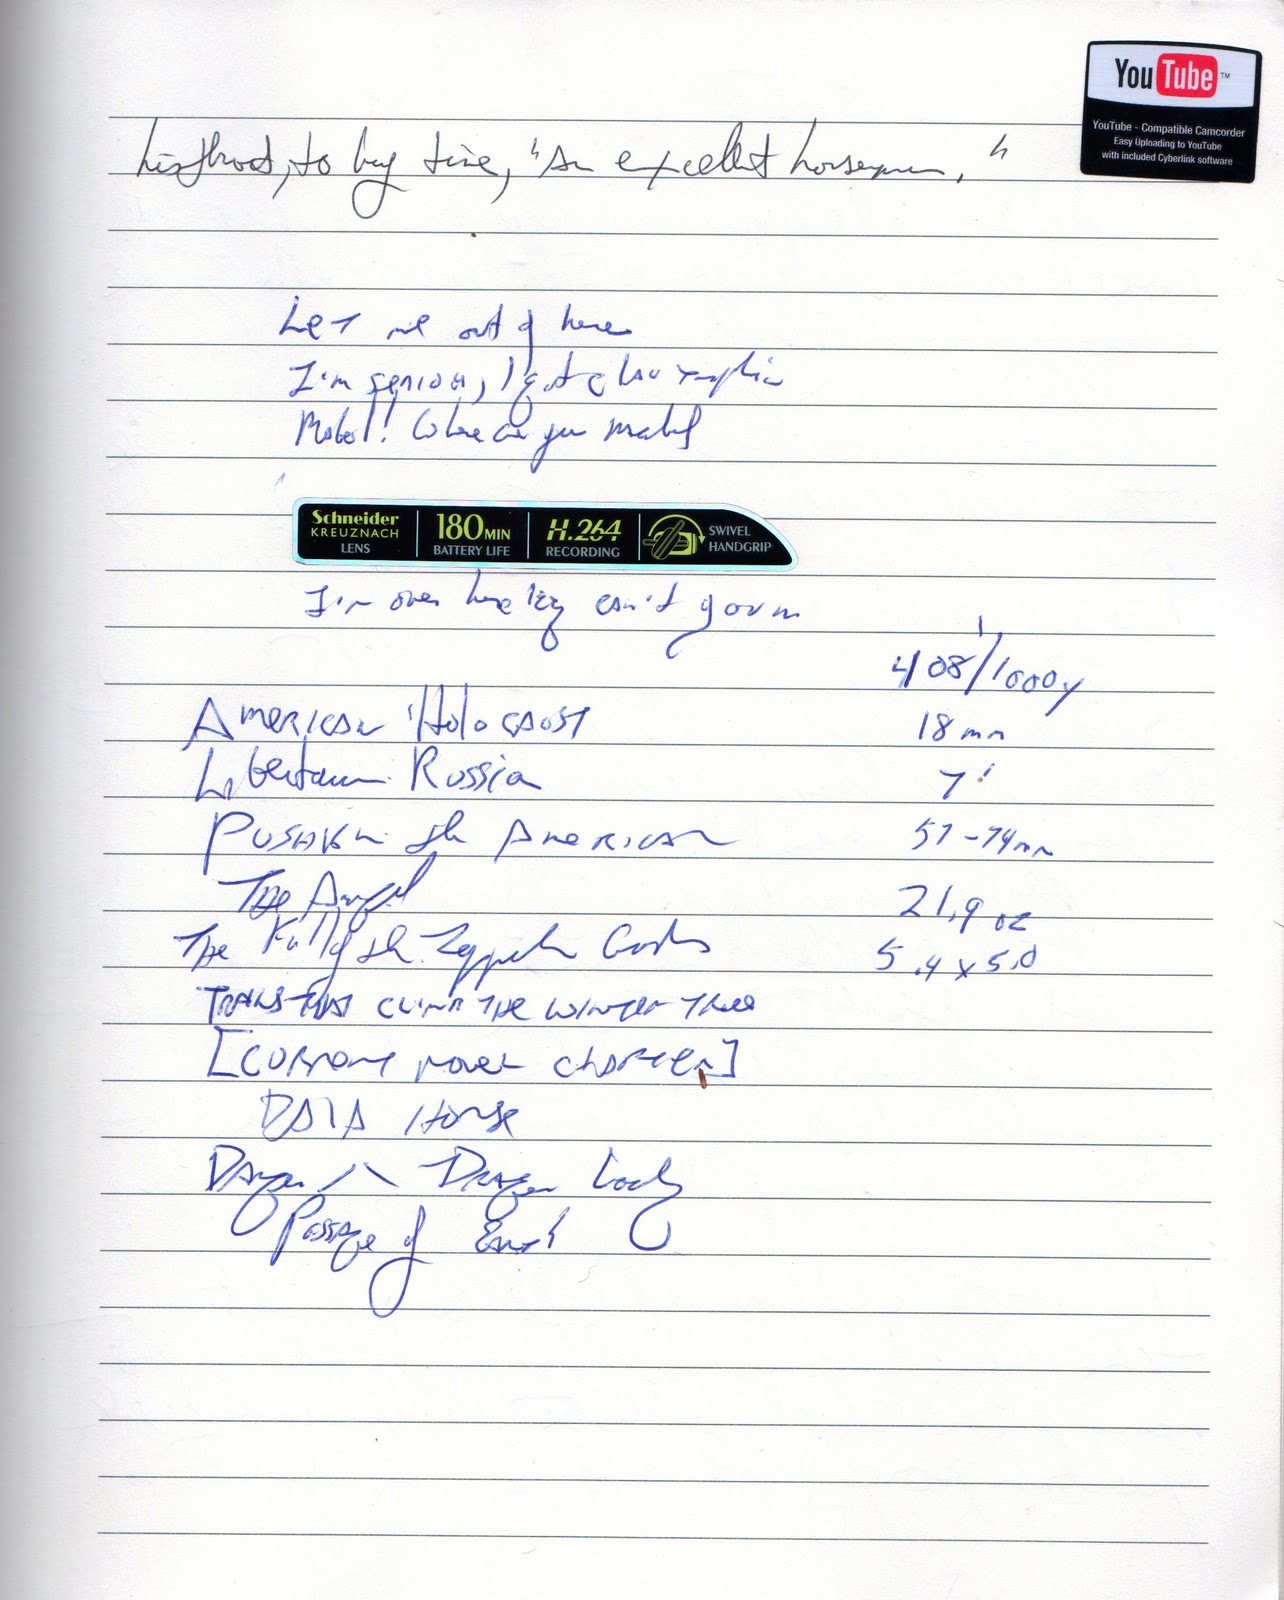 YouTube™
YouTube - Compatible Camcorder
Easy Uploading to YouTube
with included Cyberlink software
his throat, to buy time, "An excellent horseman."
Let me out of here
I'm serious, I got a
Mabel! Where are you Mabel
Schneider KREUZNACH LENS
180 MIN BATTERY LIFE
H.264 RECORDING
SWIVEL HANDGRIP
I'm over here can't
408/1000y
American Holocaust 18 mm
Libertarian Russia 7'
Pushkin the American 57-74mm
The Angel 21.9 oz
The Fall of the Zeppelin 5.4 x 5.0
TRAINS THAT CLIMB THE WINTER TREE
[CURRENT NOVEL CHAPTER]
DALA HORSE
Dragon Lady
Passage of Earth